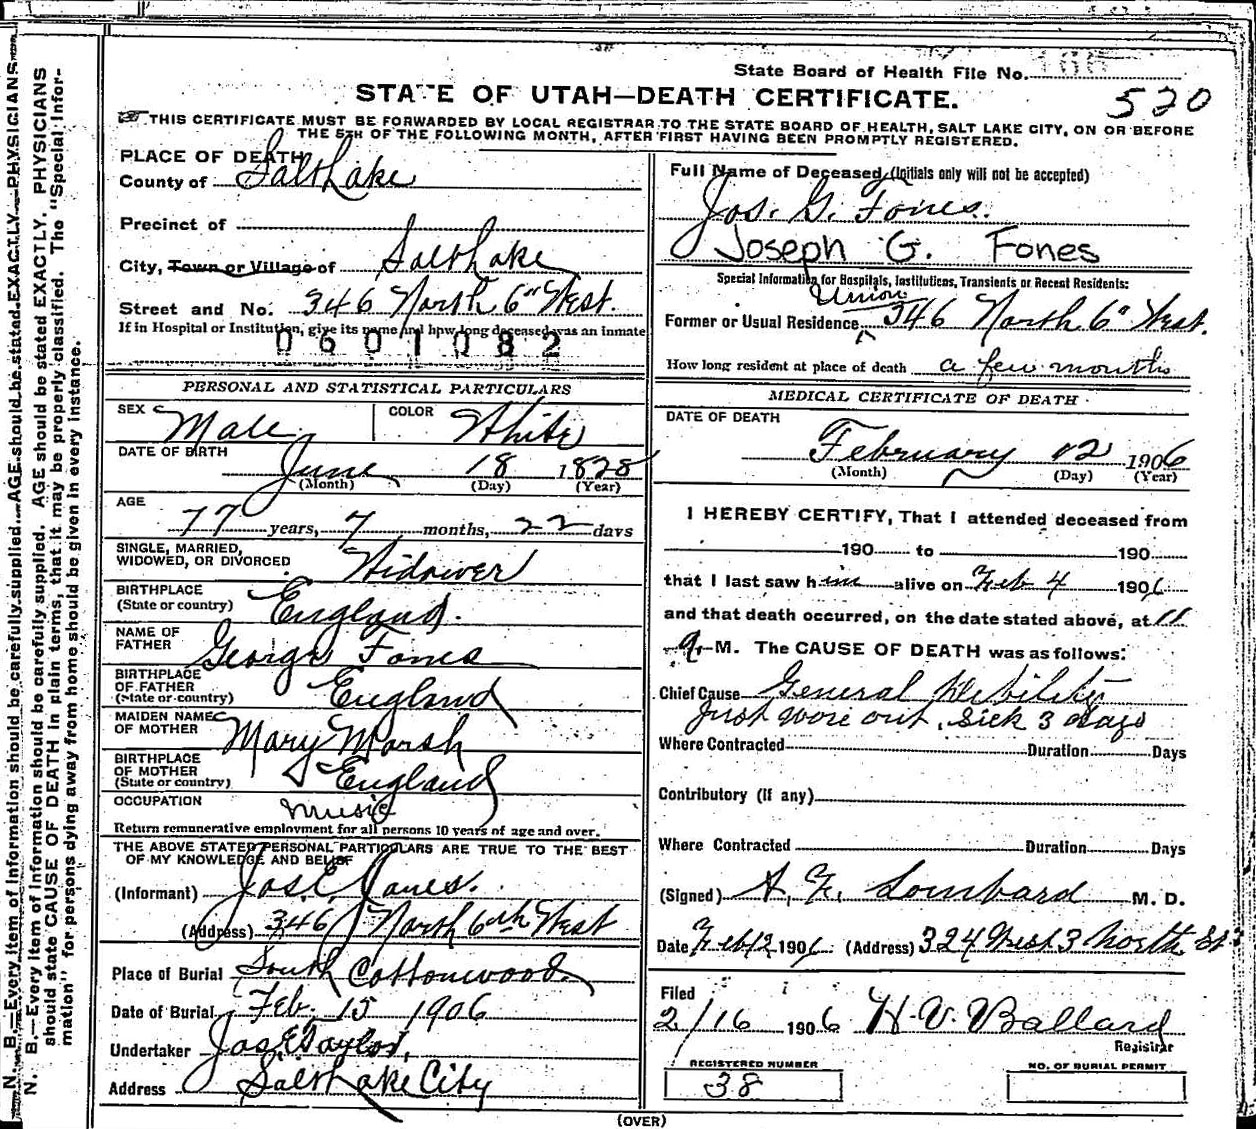 State Board of Health File No.
520
STATE OF UTAH—DEATH CERTIFICATE.
THIS CERTIFICATE MUST BE FORWARDED BY LOCAL REGISTRAR TO THE STATE BOARD OF HEALTH, SALT LAKE CITY, ON OR BEFORE
THE 5TH OF THE FOLLOWING MONTH, AFTER FIRST HAVING BEEN PROMPTLY REGISTERED.
PLACE OF DEATH
County of Salt Lake
Precinct of
City, Town or Village of Salt Lake
Street and No. 346 North 6th West.
If in Hospital or Institution, give its name and how long deceased was an inmate
0601082
PERSONAL AND STATISTICAL PARTICULARS
SEX Male COLOR White
DATE OF BIRTH
June 18 1828
(Month) (Day) (Year)
AGE
77 years, 7 months, 22 days
SINGLE, MARRIED,
WIDOWED, OR DIVORCED Widower
BIRTHPLACE
(State or country) England.
NAME OF
FATHER George Fones
BIRTHPLACE
OF FATHER
(State or country) England
MAIDEN NAME
OF MOTHER Mary Marsh
BIRTHPLACE
OF MOTHER
(State or country) England
OCCUPATION Music
Return remunerative employment for all persons 10 years of age and over.
THE ABOVE STATED PERSONAL PARTICULARS ARE TRUE TO THE BEST
OF MY KNOWLEDGE AND BELIEF
(Informant) Jos. E. Jones.
(Address) 346 North 6th West
Place of Burial South Cottonwood
Date of Burial Feb. 15 1906
Undertaker Jos E Taylor,
Address Salt Lake City
Full Name of Deceased (Initials only will not be accepted)
Jos. G. Fones.
Joseph G. Fones
Special Information for Hospitals, Institutions, Transients or Recent Residents:
Union
Former or Usual Residence 346 North 6" West.
How long resident at place of death a few months
MEDICAL CERTIFICATE OF DEATH
DATE OF DEATH
February 12 1906
(Month) (Day) (Year)
I HEREBY CERTIFY, That I attended deceased from
190 to 190
that I last saw him alive on Feb 4 1906
and that death occurred, on the date stated above, at 11
a. M. The CAUSE OF DEATH was as follows:
Chief Cause General Debility
Just wore out, sick 3 days
Where Contracted Duration Days
Contributory (if any)
Where Contracted Duration Days
(Signed) A. F. Lombard M. D.
Date Feb 12 1906 (Address) 324 West 3 North St
Filed
2/16 1906 H. V. Ballard
Registrar
REGISTERED NUMBER
38
NO. OF BURIAL PERMIT
(OVER)
N. B.—Every item of information should be carefully supplied. AGE should be stated EXACTLY. PHYSICIANS
N. B.—Every item of information should be carefully supplied. AGE should be stated EXACTLY. PHYSICIANS
should state CAUSE OF DEATH in plain terms, that it may be properly classified. The "Special Infor-
mation" for persons dying away from home should be given in every instance.